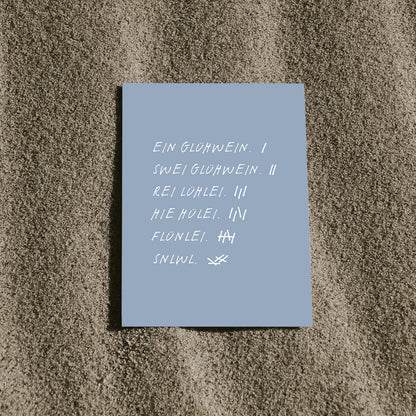 EIN GLÜHWEIN. I
SWEI GLÜHWEIN. II
REI LÜHLEI. III
HIE HÜLEI. IIII
FLÜNLEI.
SNLWL.